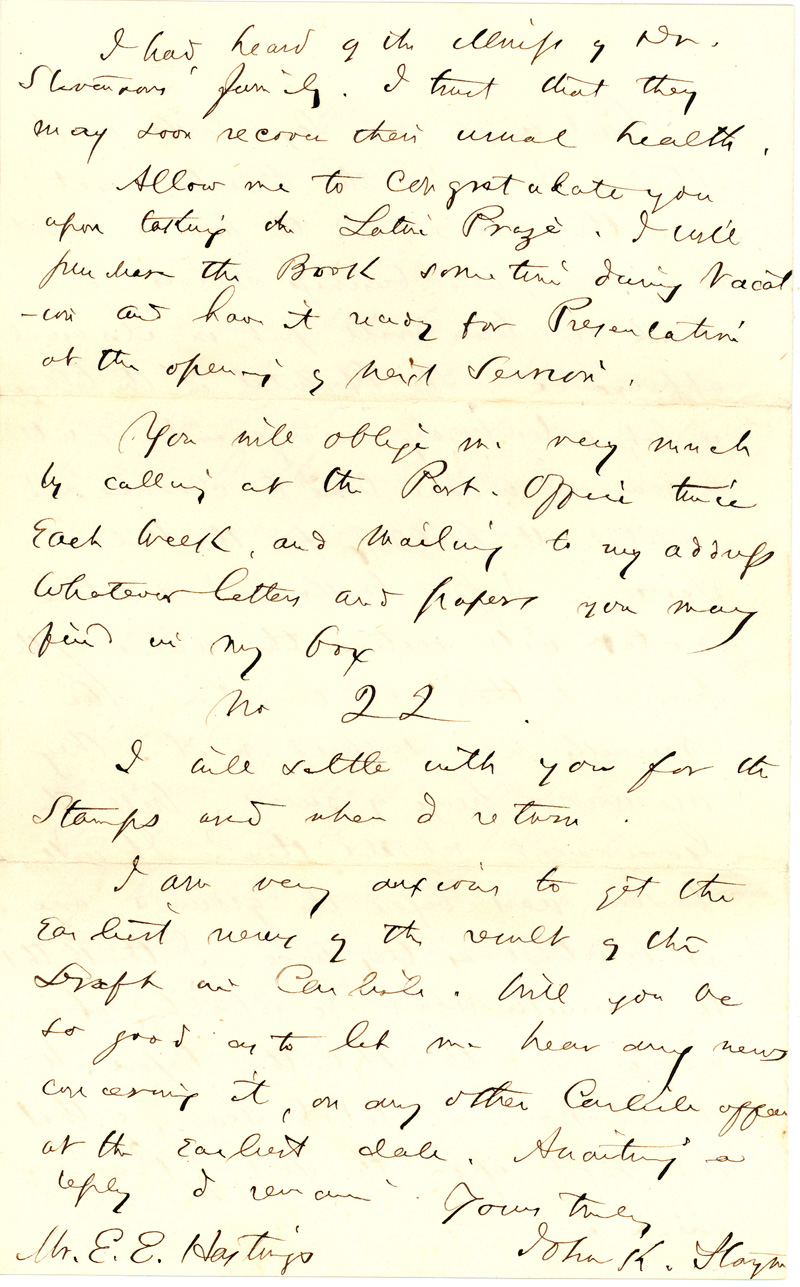 I had heard of the illness of Dr.
Stevensons' family. I trust that they
may soon recover their usual health.
Allow me to congratulate you
upon taking the Latin Prize. I will
purchase the Book sometime during Vacat
-ion and have it ready for Presentation
at the opening of next Session.
You will oblige me very much
by calling at the Post. Office twice
Each Week, and Mailing to my address
Whatever letters and papers you may
find in my box
No 22.
I will settle with you for the
Stamps used when I return.
I am very anxious to get the
Earliest news of the result of the
Draft in Carlisle. Will you be
so good as to let me hear any news
concerning it, or any other Carlisle
at the Earliest date. Awaiting a
reply I remain Yours truly
Mr. E. E. Hastings John K. Staym